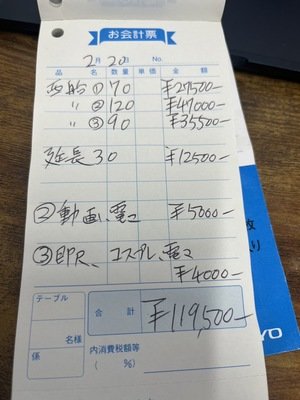 お会計票
2月20日 No.
品名 数量 単価 金額
西船① 70 ¥27500-
〃 ② 120 ¥47000-
〃 ③ 90 ¥35500-
延長 30 ¥12500-
②動画、電マ ¥5000-
③即尺、コスプレ、電マ
¥4000-
テーブル
名様
係
合計 ¥119,500-
内消費税額等
( %)
枚
り
YO